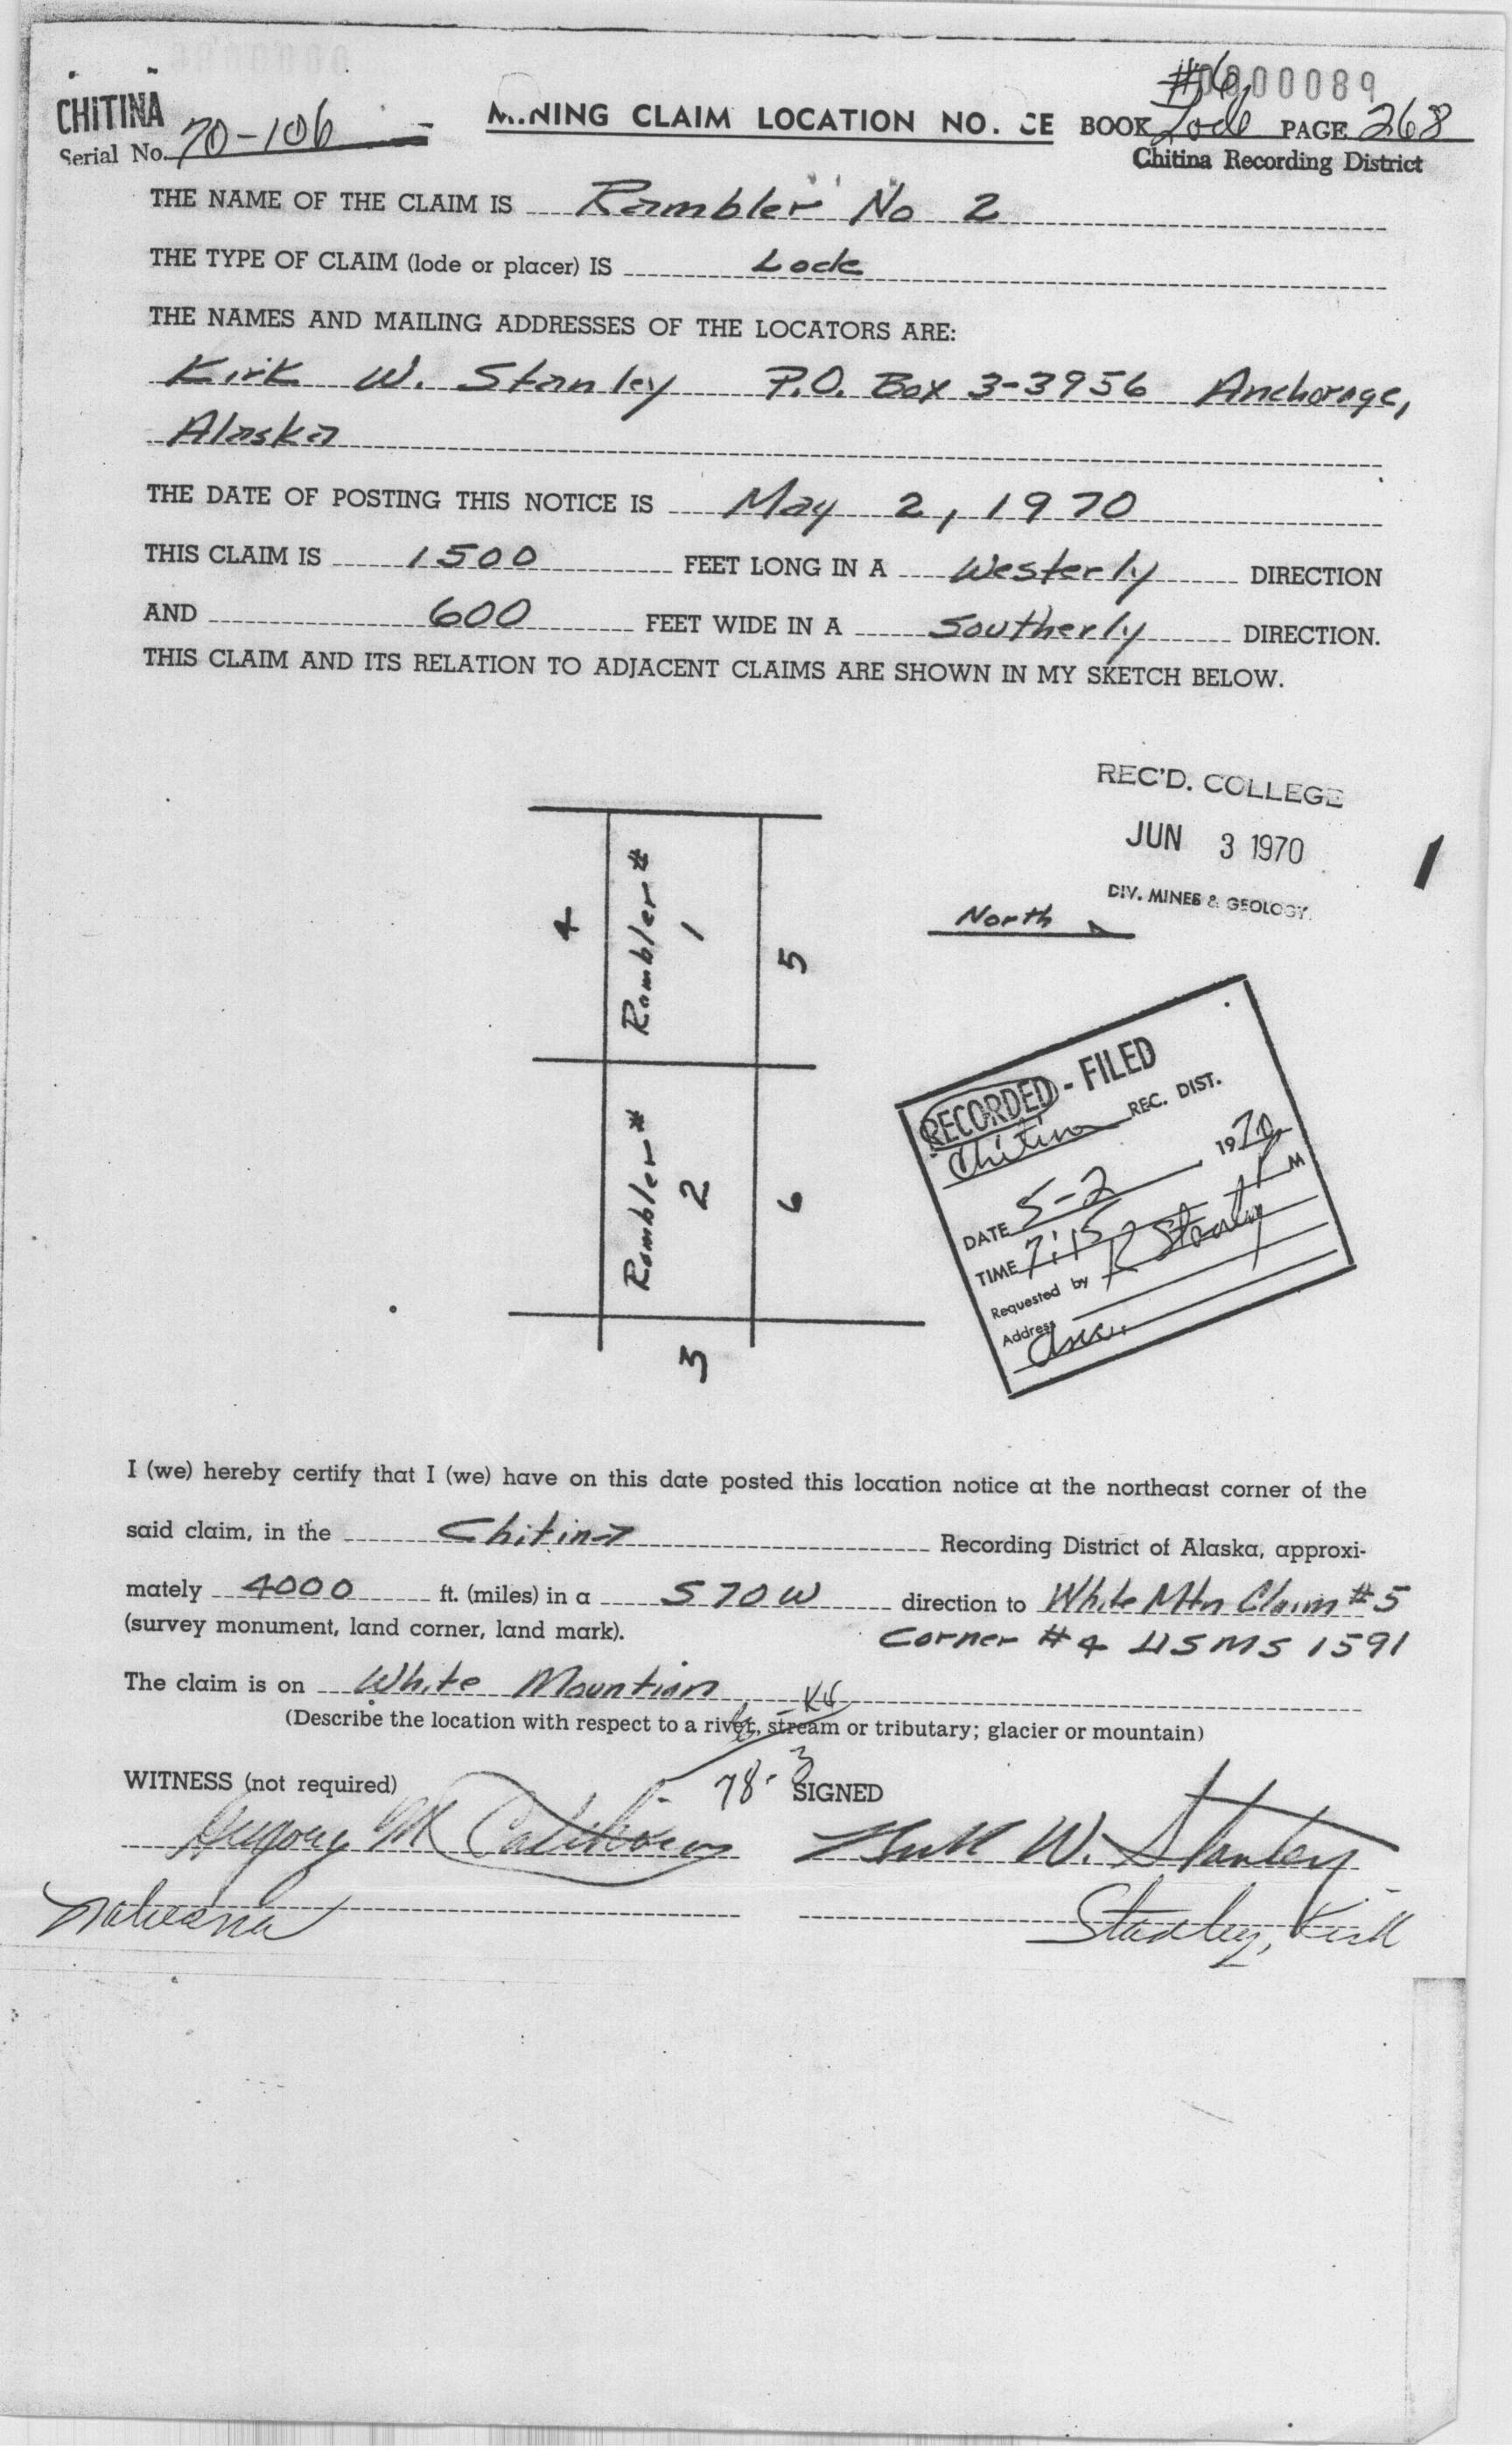 CHITINA
Serial No. 70-106
MINING CLAIM LOCATION NO. CE BOOK Lode PAGE 268
#6
0000089
Chitina Recording District
THE NAME OF THE CLAIM IS Rambler No 2
THE TYPE OF CLAIM (lode or placer) IS Lode
THE NAMES AND MAILING ADDRESSES OF THE LOCATORS ARE:
Kirk W. Stanley P.O. Box 3-3956 Anchorage,
Alaska
THE DATE OF POSTING THIS NOTICE IS May 2, 1970
THIS CLAIM IS 1500 FEET LONG IN A Westerly DIRECTION
AND 600 FEET WIDE IN A Southerly DIRECTION.
THIS CLAIM AND ITS RELATION TO ADJACENT CLAIMS ARE SHOWN IN MY SKETCH BELOW.
REC'D. COLLEGE
JUN 3 1970
DIV. MINES & GEOLOGY
North
4
Rambler #
1
5
Rambler #
2
6
3
RECORDED - FILED
Chitina REC. DIST.
DATE 5-2 1970
TIME 7:15 P M
Requested by K Stanley
Address
Anc.
I (we) hereby certify that I (we) have on this date posted this location notice at the northeast corner of the
said claim, in the Chitina Recording District of Alaska, approxi-
mately 4000 ft. (miles) in a S 70 W direction to White Mtn Claim #5
(survey monument, land corner, land mark). Corner #4 USMS 1591
The claim is on White Mountian
(Describe the location with respect to a river, stream or tributary; glacier or mountain)
78-3
WITNESS (not required) SIGNED
Kirk W. Stanley
Nabesna
Stanley, Kirk